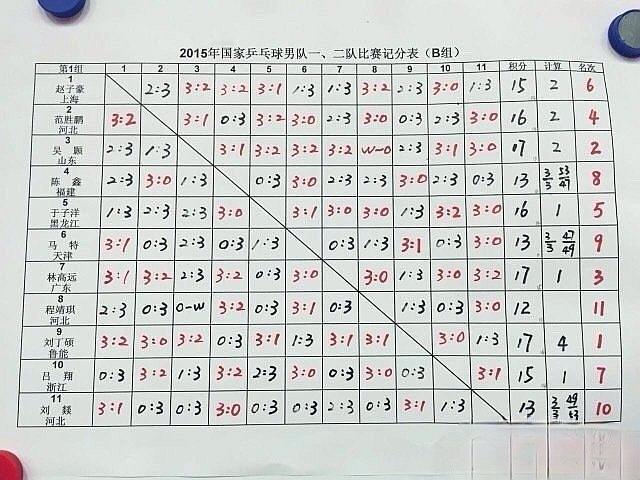 2015年国家乒乓球男队一、二队比赛记分表（B组）
第1组 1 2 3 4 5 6 7 8 9 10 11 积分 计算 名次
1 赵子豪 上海 2:3 3:2 3:2 3:1 1:3 1:3 3:2 2:3 3:0 1:3 15 2 6
2 范胜鹏 河北 3:2 3:1 0:3 3:2 3:0 2:3 3:0 0:3 2:3 3:0 16 2 4
3 吴颢 山东 2:3 1:3 3:1 3:2 3:2 3:2 W-0 2:3 3:1 3:0 17 2 2
4 陈鑫 福建 2:3 3:0 1:3 0:3 3:0 2:3 2:3 3:0 2:3 0:3 13 3/3 53/47 8
5 于子洋 黑龙江 1:3 2:3 2:3 3:0 3:1 3:0 3:0 1:3 3:2 3:0 16 1 5
6 马特 天津 3:1 0:3 2:3 0:3 1:3 0:3 1:3 3:1 0:3 3:0 13 3/3 47/49 9
7 林高远 广东 3:1 3:2 2:3 3:2 0:3 3:0 3:0 1:3 3:0 3:2 17 1 3
8 程靖琪 河北 2:3 0:3 0-W 3:2 0:3 3:1 0:3 1:3 0:3 3:0 12 11
9 刘丁硕 鲁能 3:2 3:0 3:2 0:3 3:1 1:3 3:1 3:1 3:0 1:3 17 4 1
10 吕翔 浙江 0:3 3:2 1:3 3:2 2:3 3:0 0:3 3:0 0:3 3:1 15 1 7
11 刘燚 河北 3:1 0:3 0:3 3:0 0:3 0:3 2:3 0:3 3:1 1:3 13 3/3 49/53 10